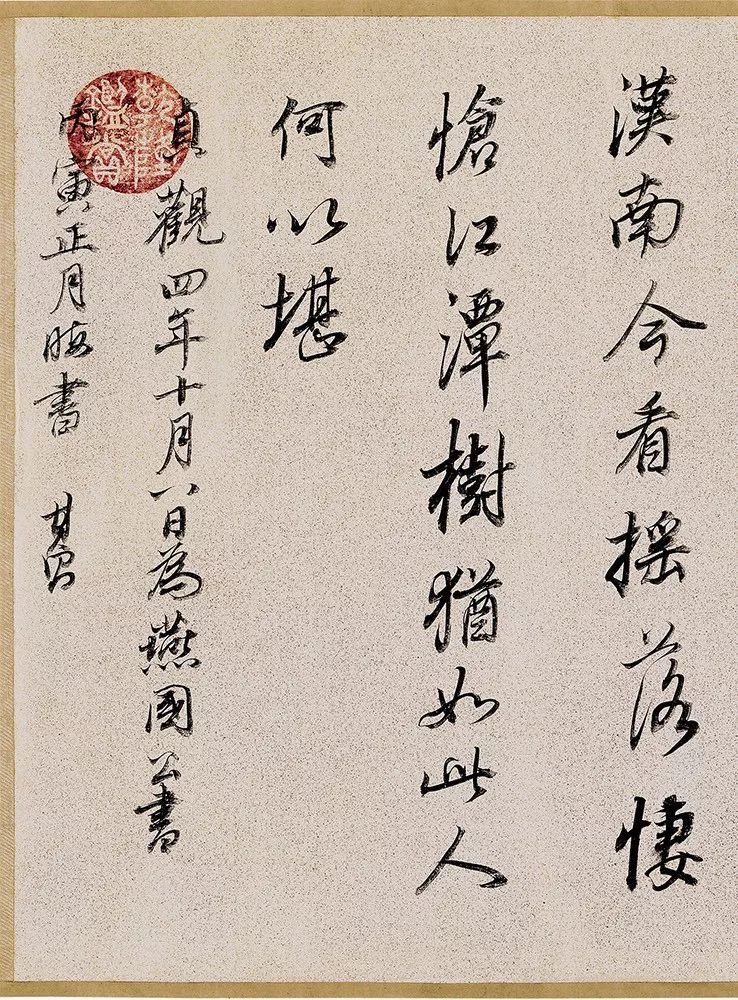 漢南今看搖落悽
愴江潭樹猶如此人
何以堪
貞觀四年十月八日為燕國公書
丙寅正月晦書 其昌
乾隆鑑賞